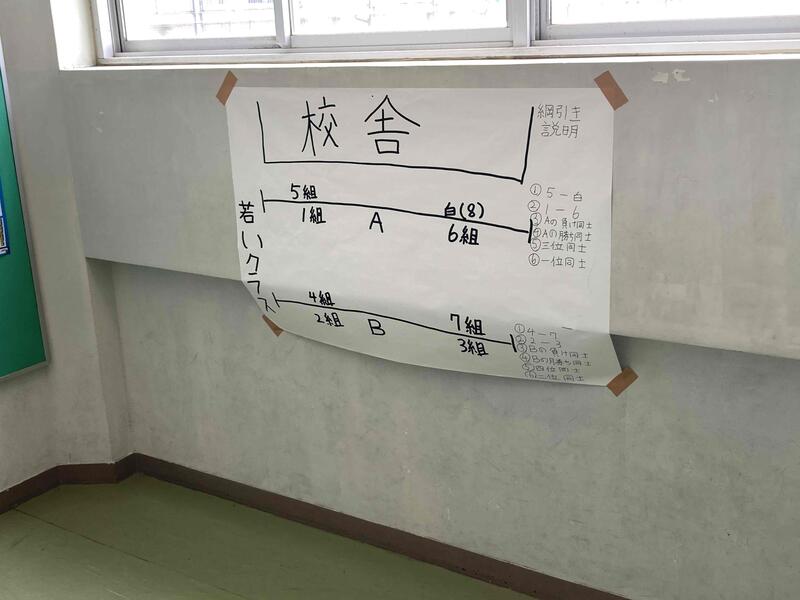 校舎
綱引き
説明
若いクラス
5組
1組
A
白(8)
6組
① 5－白
② 1－6
③ Aの負け同士
④ Aの勝ち同士
⑤ 三位同士
⑥ 一位同士
4組
2組
B
7組
3組
① 4－7
② 2－3
③ Bの負け同士
④ Bの勝ち同士
⑤ 四位同士
⑥ 二位同士